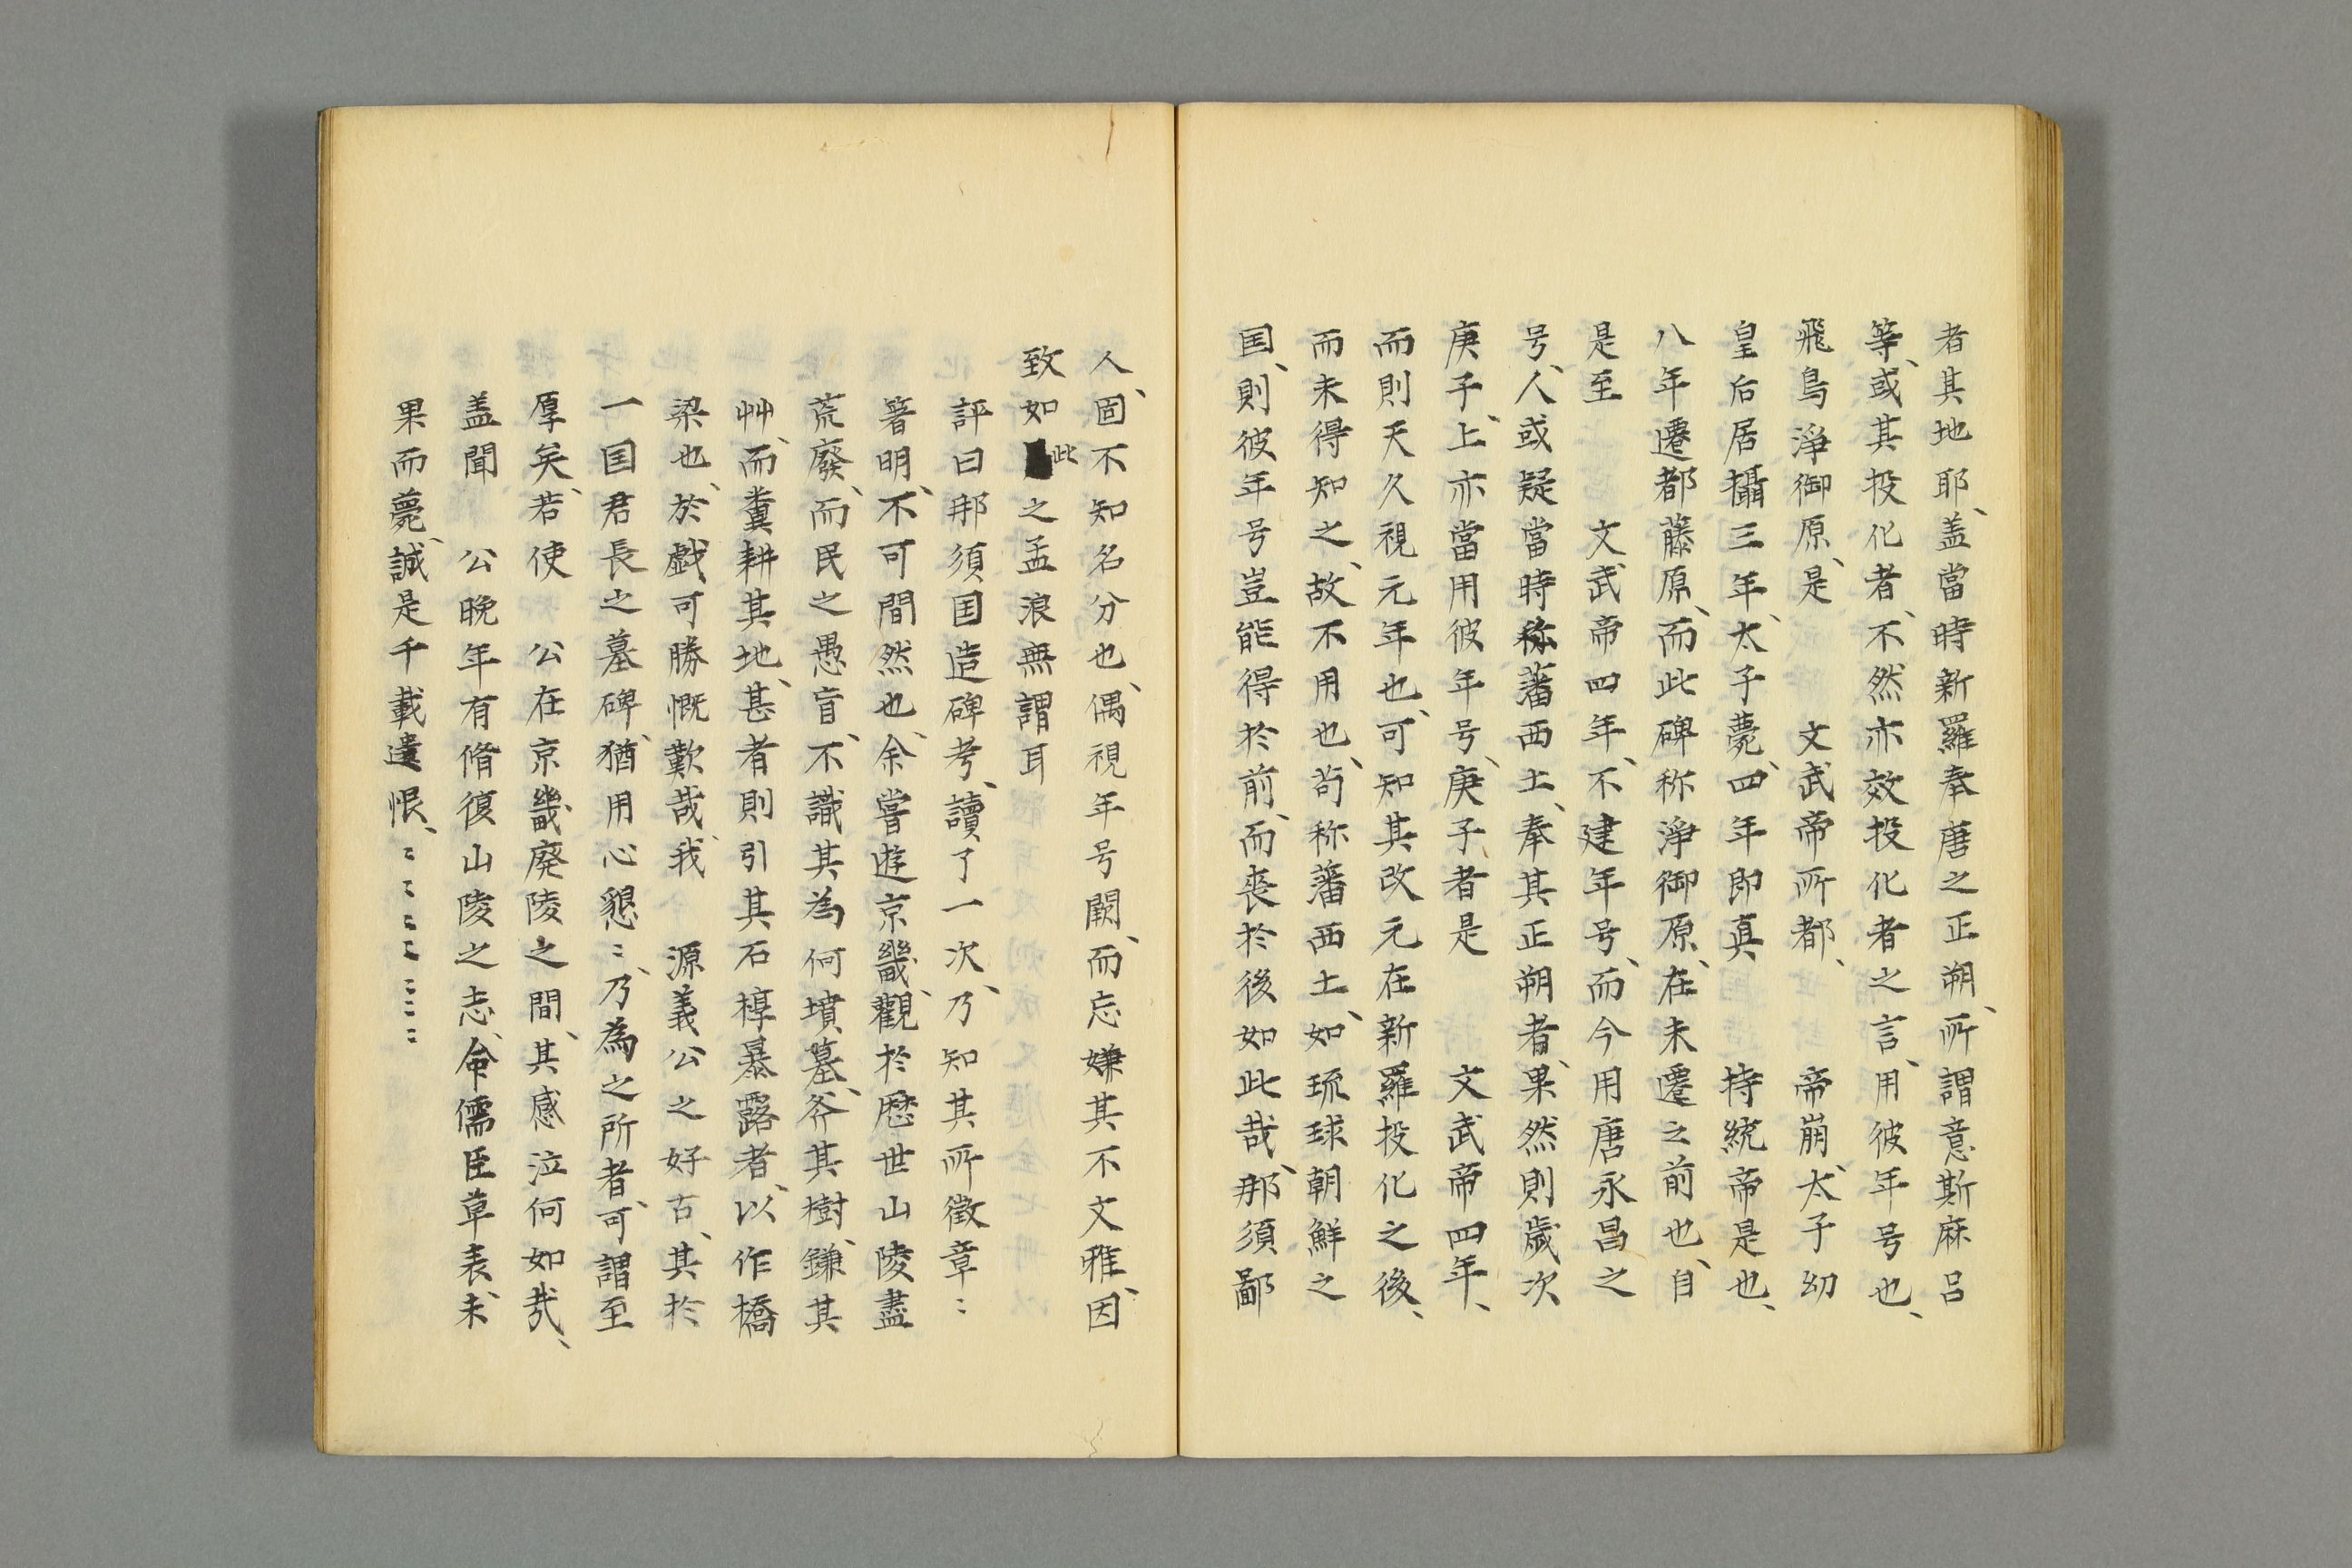 者其地耶、盖當時新羅奉唐之正朔、所謂意斯麻呂
等、或其投化者、不然亦效投化者之言、用彼年号也、
飛鳥淨御原、是　　文武帝所都、　帝崩、太子幼
皇后居攝三年、太子薨、四年即真　　持統帝是也、
八年遷都藤原、而此碑称淨御原、在未遷之前也、自
是至　　文武帝四年、不建年号、而今用唐永昌之
号、人或疑當時称藩西土、奉其正朔者、果然則歳次
庚子、上亦當用彼年号、庚子者是　　文武帝四年、
而則天久視元年也、可知其改元在新羅投化之後、
而未得知之、故不用也、苟称藩西土、如琉球朝鮮之
国、則彼年号豈能得於前、而喪於後如此哉、那須鄙
人、固不知名分也、偶視年号闕、而忘嫌其不文雅、因
致如此之孟浪無謂耳
評曰那須国造碑考、讀了一次、乃知其所徵章〻
著明、不可間然也、余嘗遊京畿、觀於歴世山陵盡
荒廢、而民之愚盲、不識其為何墳墓、斧其樹、鎌其
艸、而糞耕其地、甚者則引其石槨暴露者、以作橋
梁也、於戯可勝慨歎哉、我　源義公之好古、其於
一国君長之墓碑、猶用心懇〻、乃為之所者、可謂至
厚矣、若使　公在京畿廃陵之間、其感泣何如哉、
盖聞　公晩年有脩復山陵之志、命儒臣草表、未
果而薨、誠是千載遺恨、〻〻〻〻〻〻〻